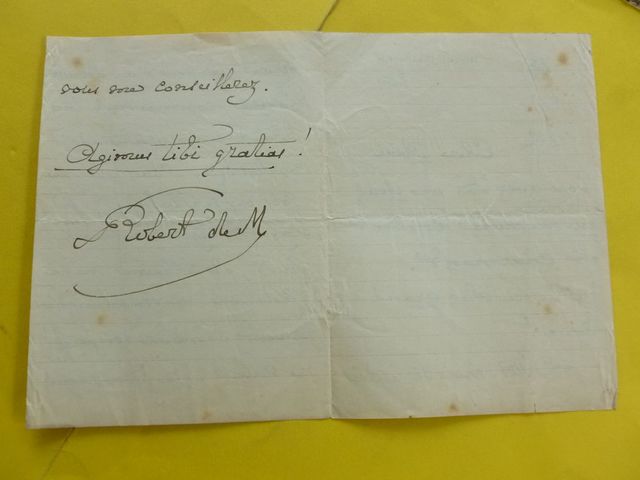 vous me conseillerez.
Agimus tibi gratias!
Robert de M